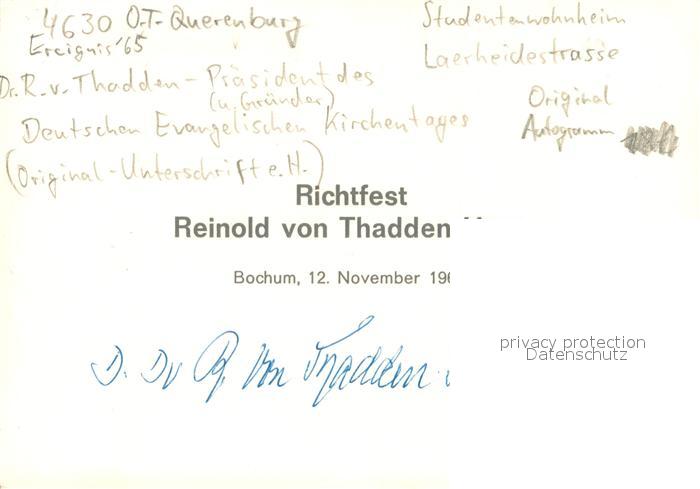 4630 O.T.-Querenburg
Ereignis '65
Dr. R. v. Thadden - Präsident des
(u. Gründer)
Deutschen Evangelischen Kirchentages
(Original-Unterschrift e. H.)
Studentenwohnheim
Laerheidestrasse
Original
Autogramm
Richtfest
Reinold von Thadden
Bochum, 12. November 196
D. Dr R. von Thadden
privacy protection
Datenschutz